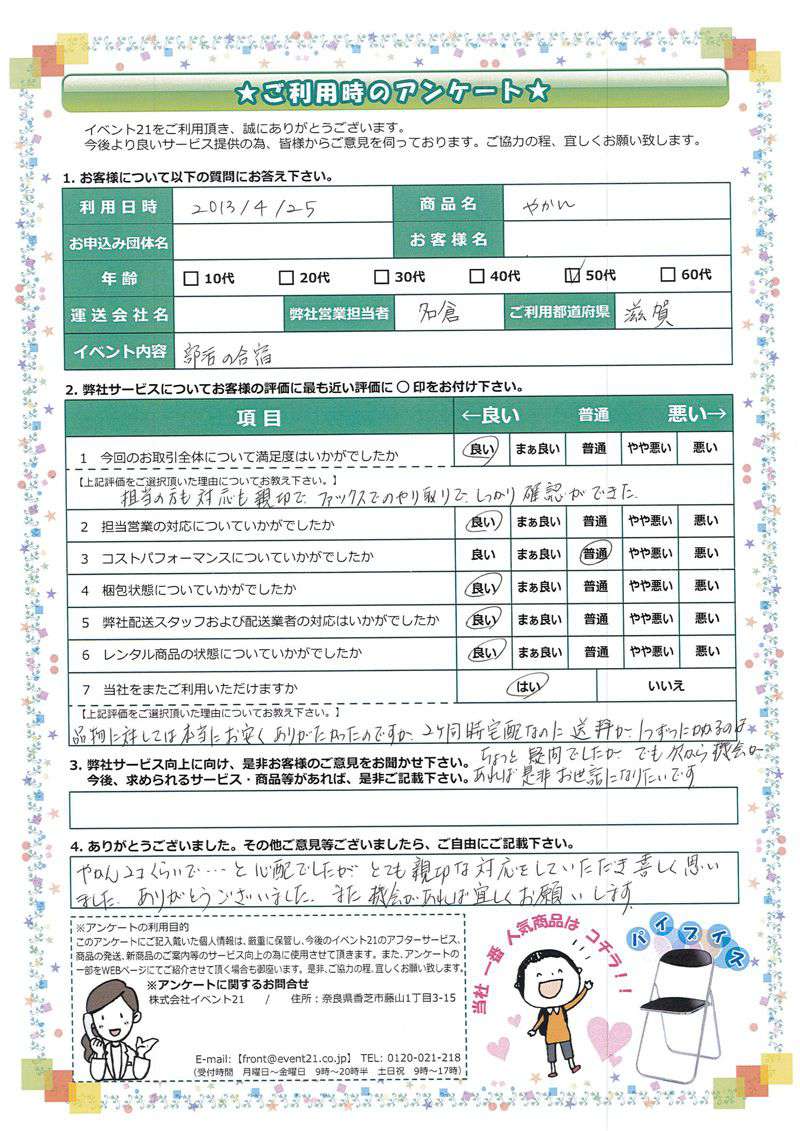 ★ご利用時のアンケート★
イベント21をご利用頂き、誠にありがとうございます。
今後より良いサービス提供の為、皆様からご意見を伺っております。ご協力の程、宜しくお願い致します。
1. お客様について以下の質問にお答え下さい。
利用日時 2013/4/25 商品名 やかん
お申込み団体名 お客様名
年齢 □10代 □20代 □30代 □40代 ☑50代 □60代
運送会社名 弊社営業担当者 名倉 ご利用都道府県 滋賀
イベント内容 部活の合宿
2. 弊社サービスについてお客様の評価に最も近い評価に 〇 印をお付け下さい。
項目 ←良い 普通 悪い→
1 今回のお取引全体について満足度はいかがでしたか 良い まぁ良い 普通 やや悪い 悪い
【上記評価をご選択頂いた理由についてお教え下さい。】
担当の方も対応も親切で、ファックスでのやり取りで、しっかり確認ができた
2 担当営業の対応についていかがでしたか 良い まぁ良い 普通 やや悪い 悪い
3 コストパフォーマンスについていかがでしたか 良い まぁ良い 普通 やや悪い 悪い
4 梱包状態についていかがでしたか 良い まぁ良い 普通 やや悪い 悪い
5 弊社配送スタッフおよび配送業者の対応はいかがでしたか 良い まぁ良い 普通 やや悪い 悪い
6 レンタル商品の状態についていかがでしたか 良い まぁ良い 普通 やや悪い 悪い
7 当社をまたご利用いただけますか はい いいえ
【上記評価をご選択頂いた理由についてお教え下さい。】
品物に対しては本当にお安くありがたかったのですが、2ヶ同時宅配なのに送料が1つずつにかかるのは
ちょっと疑問でしたが、でも次から機会が
あれば是非お世話になりたいです
3. 弊社サービス向上に向け、是非お客様のご意見をお聞かせ下さい。
今後、求められるサービス・商品等があれば、是非ご記載下さい。
4. ありがとうございました。その他ご意見等ございましたら、ご自由にご記載下さい。
やかん2コくらいで…と心配でしたが とても親切な対応をしていただき喜しく思い
ました。ありがとうございました。また機会があれば宜しくお願いします
※アンケートの利用目的
このアンケートにご記入戴いた個人情報は、厳重に保管し、今後のイベント21のアフターサービス、
商品の発送、新商品のご案内等のサービス向上の為に使用させて頂きます。また、アンケートの
一部をWEBページにてご紹介させて頂く場合も御座います。是非、ご協力の程、宜しくお願い致します。
※アンケートに関するお問合せ
株式会社イベント21 / 住所：奈良県香芝市藤山1丁目3-15
E-mail:【front@event21.co.jp】 TEL: 0120-021-218
（受付時間 月曜日～金曜日 9時～20時半 土日祝 9時～17時）
当社一番人気商品はコチラ！！
パイプイス